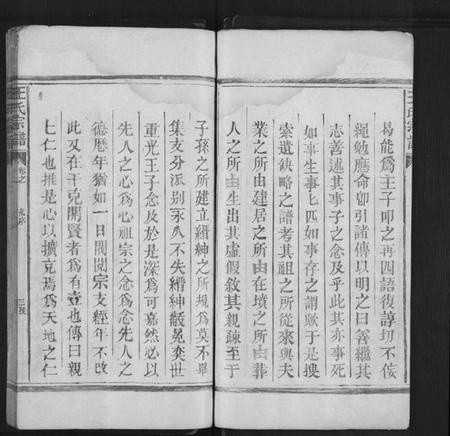 王氏宗譜
曷能爲王子叩之再四語復諄切不侫
繩勉應命卽引諸傳以明之曰善繼其
志善述其事子之念及乎此其亦事死
如事生事亡匹如事存之謂歟于是搜
索遺缺略之譜考其祖之所從來與夫
業之所由建居之所由在墳之所由葬
人之所由生出其虛假敘其親疎至于
子孫之所建立縉紳之所規爲莫不畢
集支分派别永爪不失縉紳骰冕奕世
重光王子念及於是深爲可嘉然必以
先人之心爲心祖宗之念爲念先人之
德曆年猶如一日閥閱宗支經年不改
此又在于克開賢者爲有壼也傳曰親
仁仁也推是心以擴充焉爲天地之仁
王氏宗譜
卷之